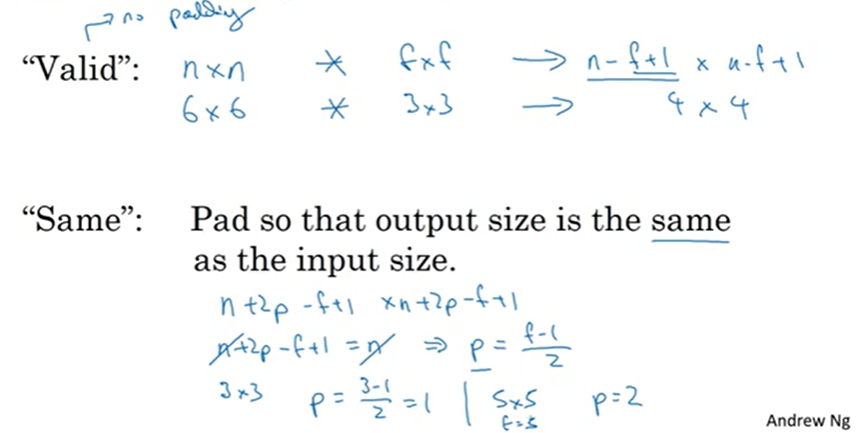 no padding
"Valid": n×n * f×f → n-f+1 × n-f+1
6×6 * 3×3 → 4×4
"Same": Pad so that output size is the same
as the input size.
n+2p-f+1 ×n+2p-f+1
n+2p-f+1 = n ⇒ p = (f-1)/2
3×3 p = (3-1)/2 = 1 | 5×5 p=2
f=5
Andrew Ng